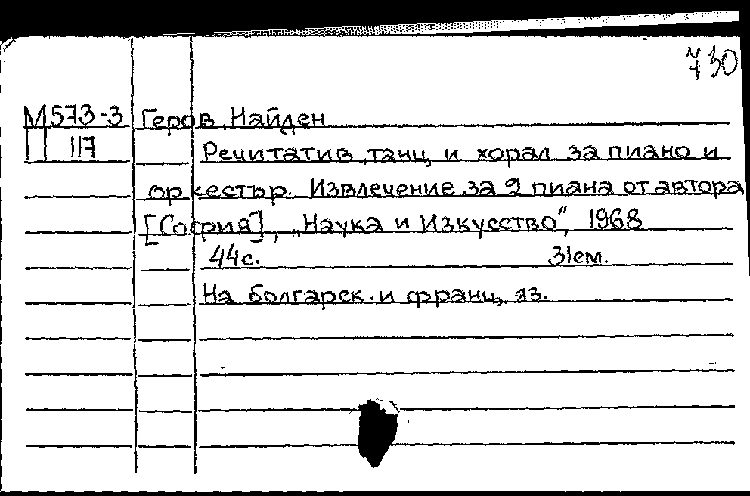 730
М573-3 Геров Найден
П 117 Речитатив, танц и хорал за пиано и
оркестър. Извлечение за 2 пиана от автора
[София], "Наука и Изкусство", 1968
44с. 31см.
На болгарск. и франц. яз.